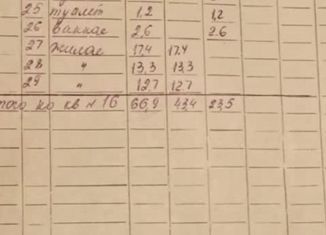 25 туалет 1,2 1,2
26 ванная 2,6 2.6
27 жилая 17.4 17.4
28 " 13,3 13,3
29 " 12,7 12.7
того по кв №16 66,9 43,4 23,5